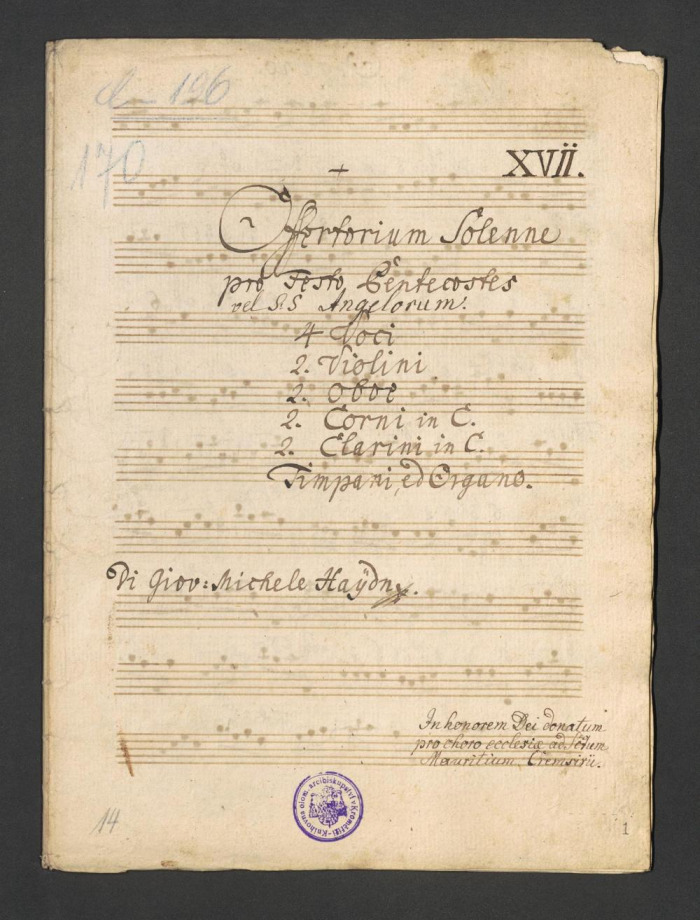 d – 196
170
XVII.
Offertorium Solenne
pro Festo Pentecostes
vel S:S Angelorum.
4 Voci
2. Violini
2. Oboe
2. Corni in C.
2. Clarini in C.
Timpani, ed Organo.
Di Giov: Michele Haÿdn
In honorem Dei donatum
pro choro ecclesiæ ad
Mauritium Cremsirii.
Knihovna olom. arcibiskupství v Kroměříži
14
1